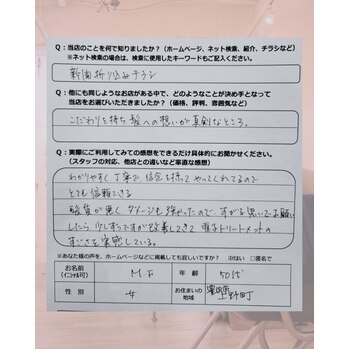 Q：当店のことを何で知りましたか？（ホームページ、ネット検索、紹介、チラシなど）
※ネット検索の場合は、検索に使用したキーワードもご記入ください。
新聞折り込みチラシ
Q：他にも同じようなお店がある中で、どのようなことが決め手となって
当店をお選びいただきましたか？（価格、評判、雰囲気など）
こだわりを持ち髪への想いが真剣なところ。
Q：実際にご利用してみての感想をできるだけ具体的にお聞かせください。
（スタッフの対応、他店との違いなど率直な感想）
わかりやすく丁寧で信念を持ってやってくれてるので
とても信頼できる
髪質が悪くダメージも強かったので、すがる思いでお願い
したら少しずつですが改善してきて電子トリートメントの
すごさを実感している。
※あなた様の声を、ホームページなどに掲載しても宜しいですか？ ☑はい □匿名で
お名前
（イニシャル可） M F 年齢 50代
性別 女 お住まいの
地域 上野町